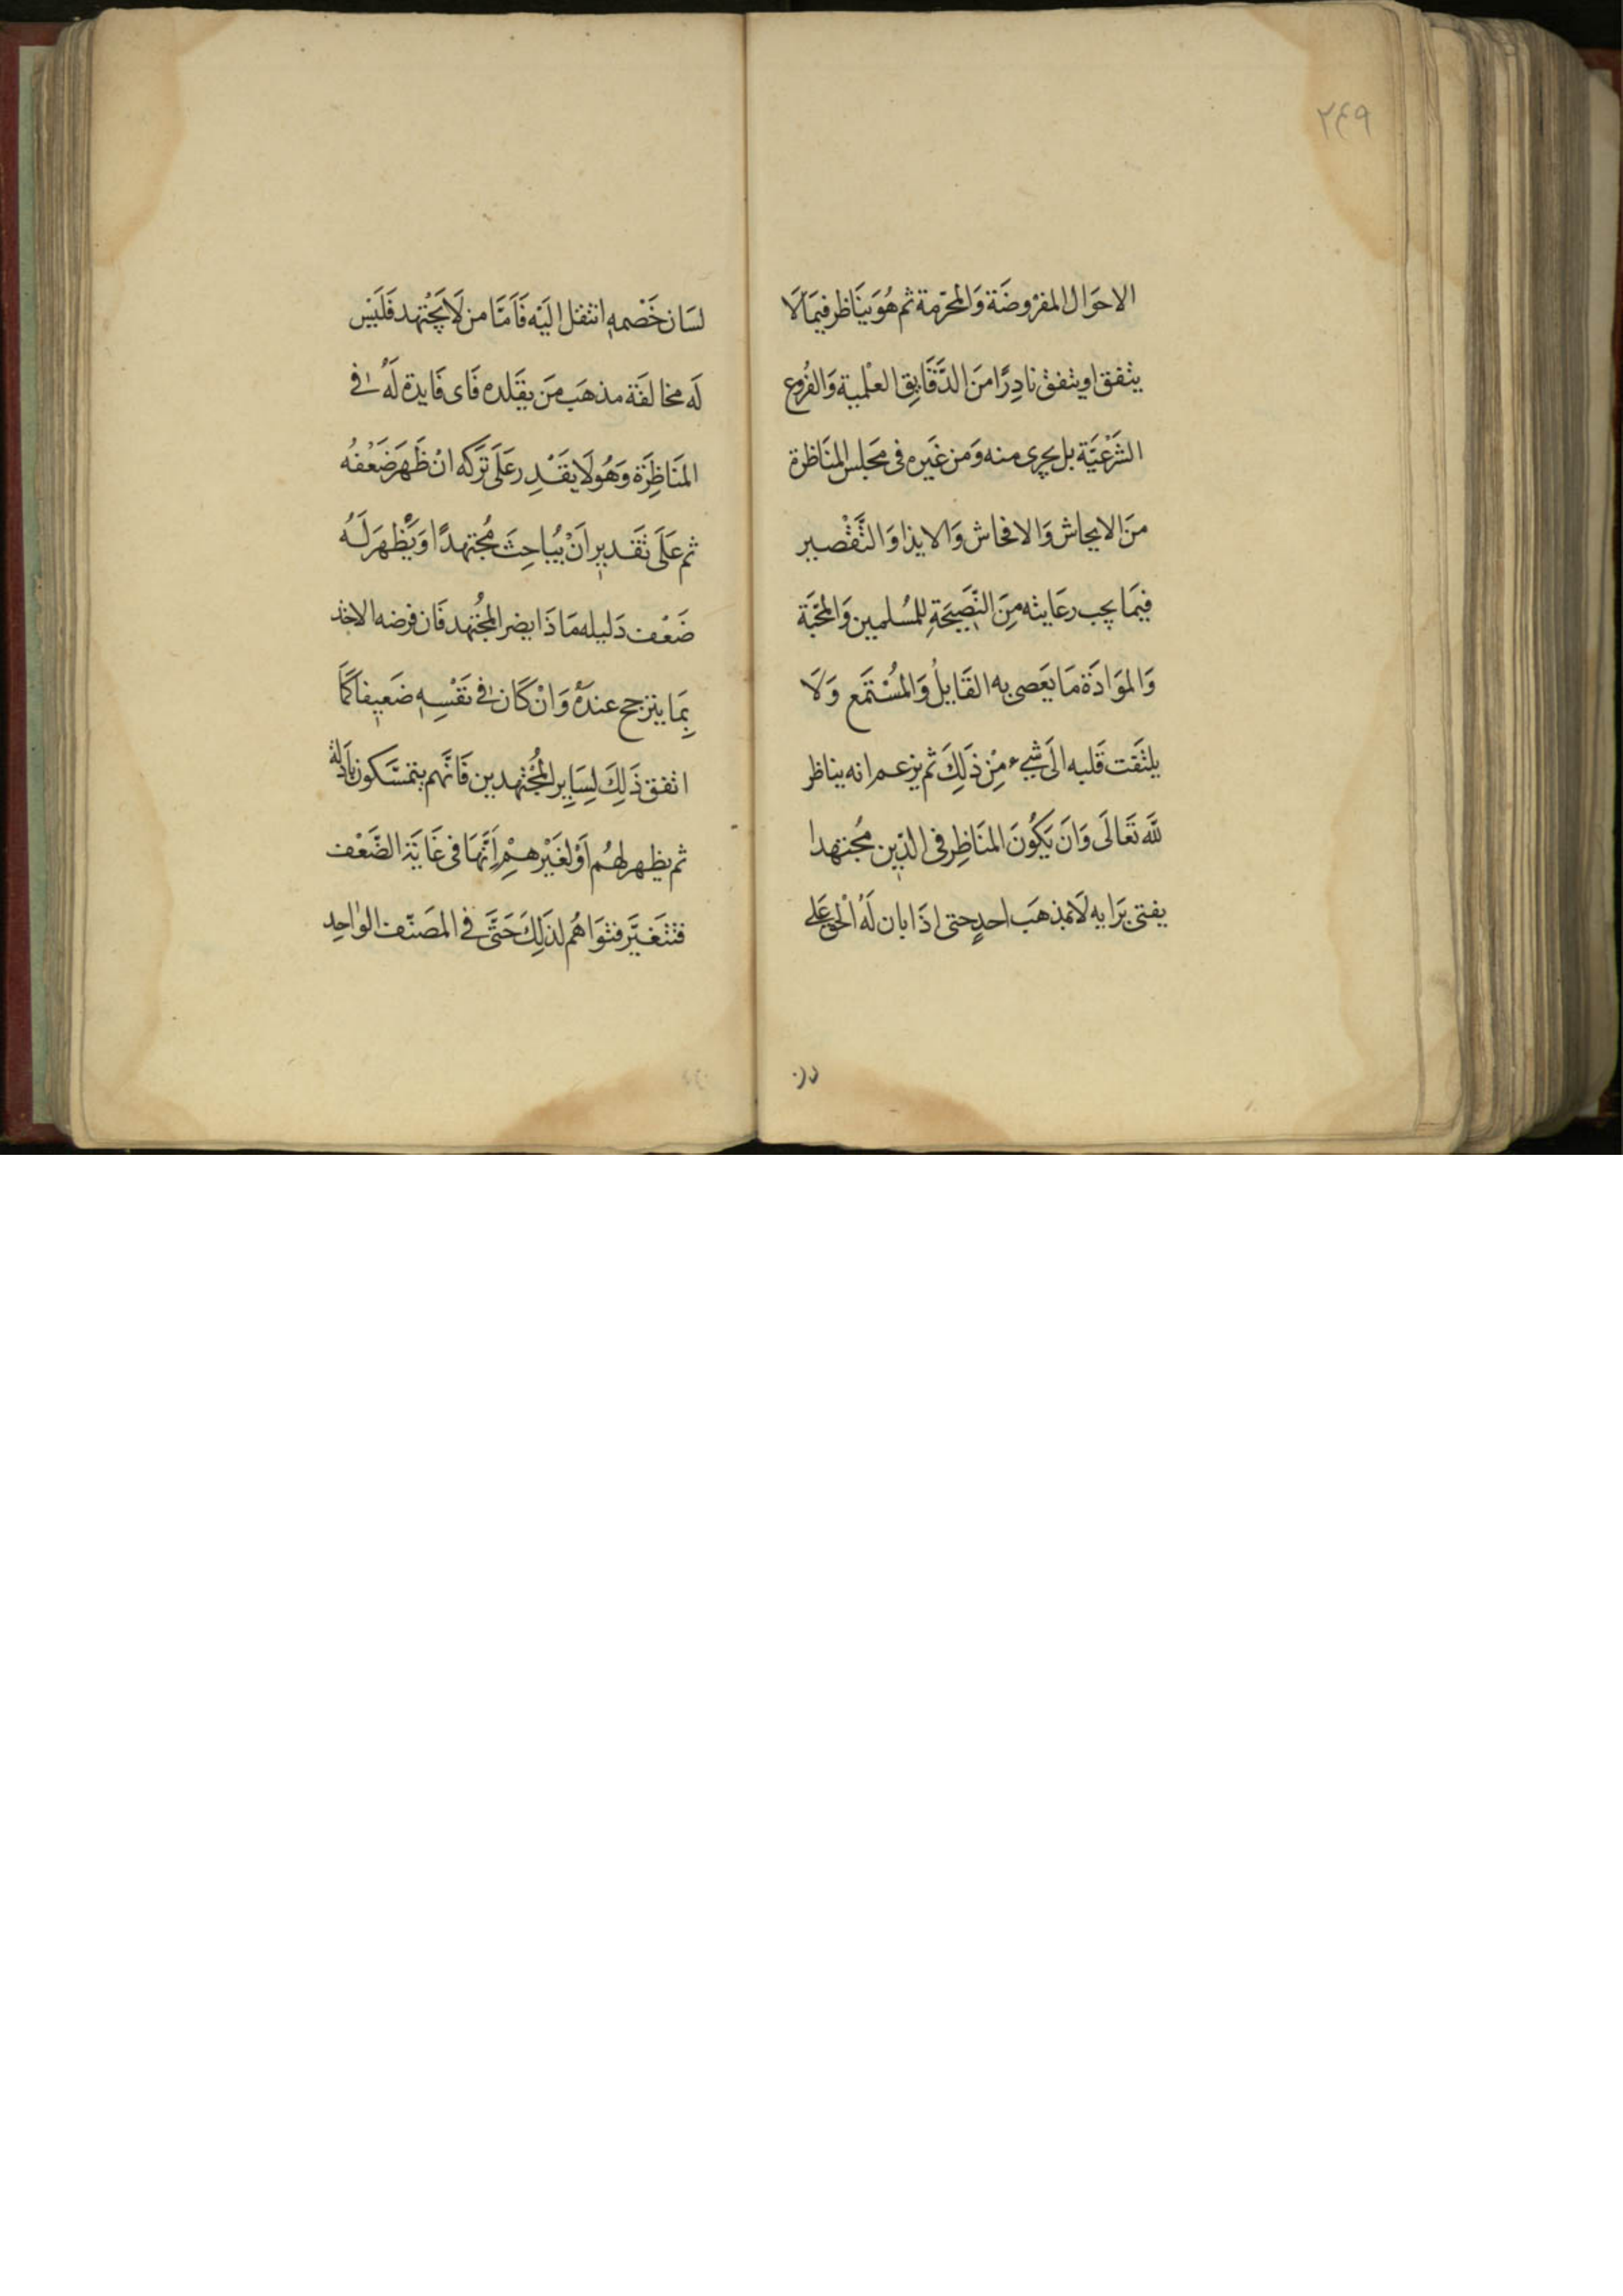 ٢٤٩
الاحَوَال المفرُوضَة وَالمحَرّمة ثم هُوَ يَنَاظر فيمَالَا
يتفق او يتفق نادِرًا منَ الدَّقَايِق العلْمية وَالفُروع
الشَرْعيَّة بل يجرى منه وَمن غَيره فى مَجلس المنَاظرة
منَ الايحاش وَالافحاش وَالايذا وَالتَّقْصير
فيمَا يجب رعَايته مِنَ النَّصِيحَةِ للمُسلمين وَالمحَبَّة
وَالموَادَة مَا يَعصى به القَايلُ وَالمُسْتَمع وَلَا
يلتَفت قَلبه الَى شَيء مِنْ ذَلِكَ ثم يزعم انه يناظر
للَّه تَعَالَى وَانَ يَكُونَ المنَاظِر فى الدّين مجُتهدا
يفتى برَايه لَا بمذهَب احدٍ حتى اذَا بان لَهُ الْحق عَلى
لسَان خَصْمِهِ انتقل اليَه فَاَمَّا من لَا يجْتهد فَليَس
لَه مخالفَة مذهَب مَن يقَلده فَاى فَايدة لَهُ فى
المنَاظِرَة وَهُو لَا يقَدْر عَلَى تَركه انْ ظَهَرَ ضَعْفُه
ثم عَلَى تَقدير اَنْ يُبَاحِثَ مُجتهدًا وَيَظهَر لَه
ضَعْف دَليله مَاذَا يضر المجُتهد فَان فرضه الاخذ
بِمَا يترجح عندَهُ وَانْ كَان فى نَفْسِهِ ضَعيفاً كمَا
اتفق ذَلِكَ لِسَايِر المجُتهدين فَانَّهم يتمسَّكون بادَلة
ثم يظهر لهُم اَوْ لغَيْرهِمْ اَنَّهَا فى غَايَة الضَّعْف
فتَتغَيَّر فتوَاهُم لذَلِكَ حَتَّى فى المصَنّف الوَاحِد